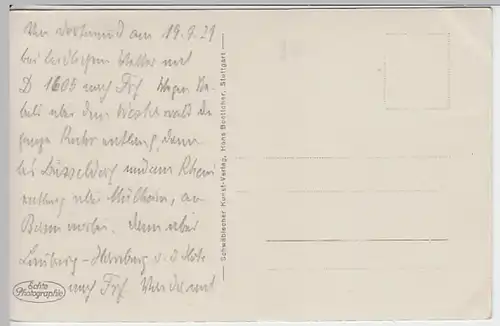 Von Dortmund am 19.9.29
bei leidlichem Wetter mit
D 1605 nach Frf. Wegen
über dem Westerwald die
ganze Ruhr entlang, dann
bis Düsseldorf und am Rhein
entlang über Mülheim, an
Bonn vorbei. Dann über
Limburg – Homburg v. d. Höhe
nach Frf.
Echte
Photographie
Schwäbischer Kunst-Verlag, Hans Boettcher, Stuttgart